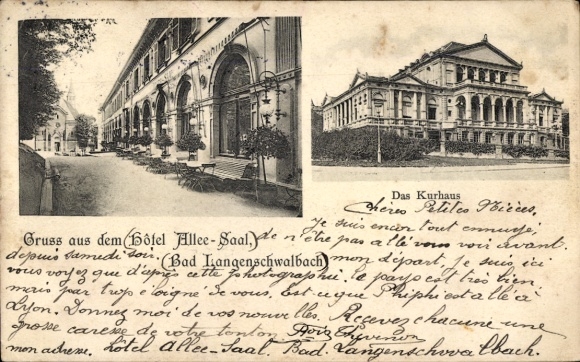 Das Kurhaus
Gruss aus dem (Hôtel Allee-Saal,)
(Bad Langenschwalbach)
Chères Petites Nièces,
Je suis encor tout ennuyé,
de n'être pas allé vous voir avant
mon départ, je suis ici
depuis samedi soir,
vous voyez que d'après cette photographie le pays est très bien
mais par trop éloigné de vous. Est ce que Phiphi est allé à
Lyon. Donnez moi de vos nouvelles. Recevez chacune une
grosse caresse de votre tonton
mon adresse. Hôtel Allee-Saal. Bad. Langenschwalbach.